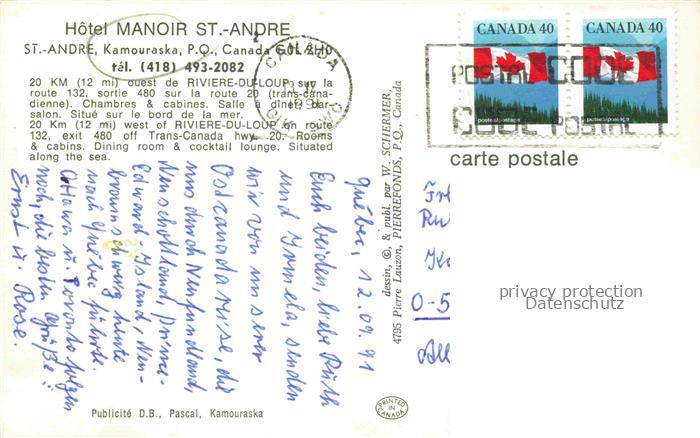 Hôtel MANOIR ST.-ANDRE
ST.-ANDRE, Kamouraska, P.Q., Canada G0L 2H0
tél. (418) 493-2082
20 KM (12 mi) ouest de RIVIERE-DU-LOUP sur la
route 132, sortie 480 sur la route 20 (trans-cana-
dienne). Chambres & cabines. Salle à dîner, bar-
salon. Situé sur le bord de la mer.
20 Km (12 mi) west of RIVIERE-DU-LOUP on route
132, exit 480 off Trans-Canada hwy. 20. Rooms
& cabins. Dining room & cocktail lounge. Situated
along the sea.
CANADA 40
CANADA 40
postes/postage
postes/postage
CANADA
POSTAL CODE
CODE POSTAL
carte postale
dessin, ©, & publ. par W. SCHERMER,
4795 Pierre Lauzon, PIERREFONDS, P.Q., Canada
Québec, 12.09.91
Euch beiden, liebe Ruth
und Irmela, senden
wir von unserer
Ostcanadareise, die
uns durch Neufundland,
Neuschottland, Prince-
Edward-Island, Neu-
braunschweig heute
nach Québec führte.
Ottawa u. Toronto folgen
noch, die besten Grüße!
Ernst u. Rose.
O-5
All
privacy protection
Datenschutz
Publicité D.B., Pascal, Kamouraska
PRINTED IN CANADA